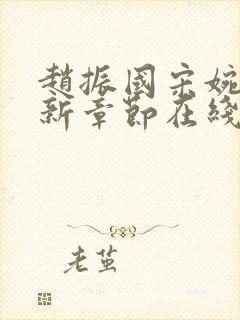 趙振國宋婉
新章節在綫
老茧